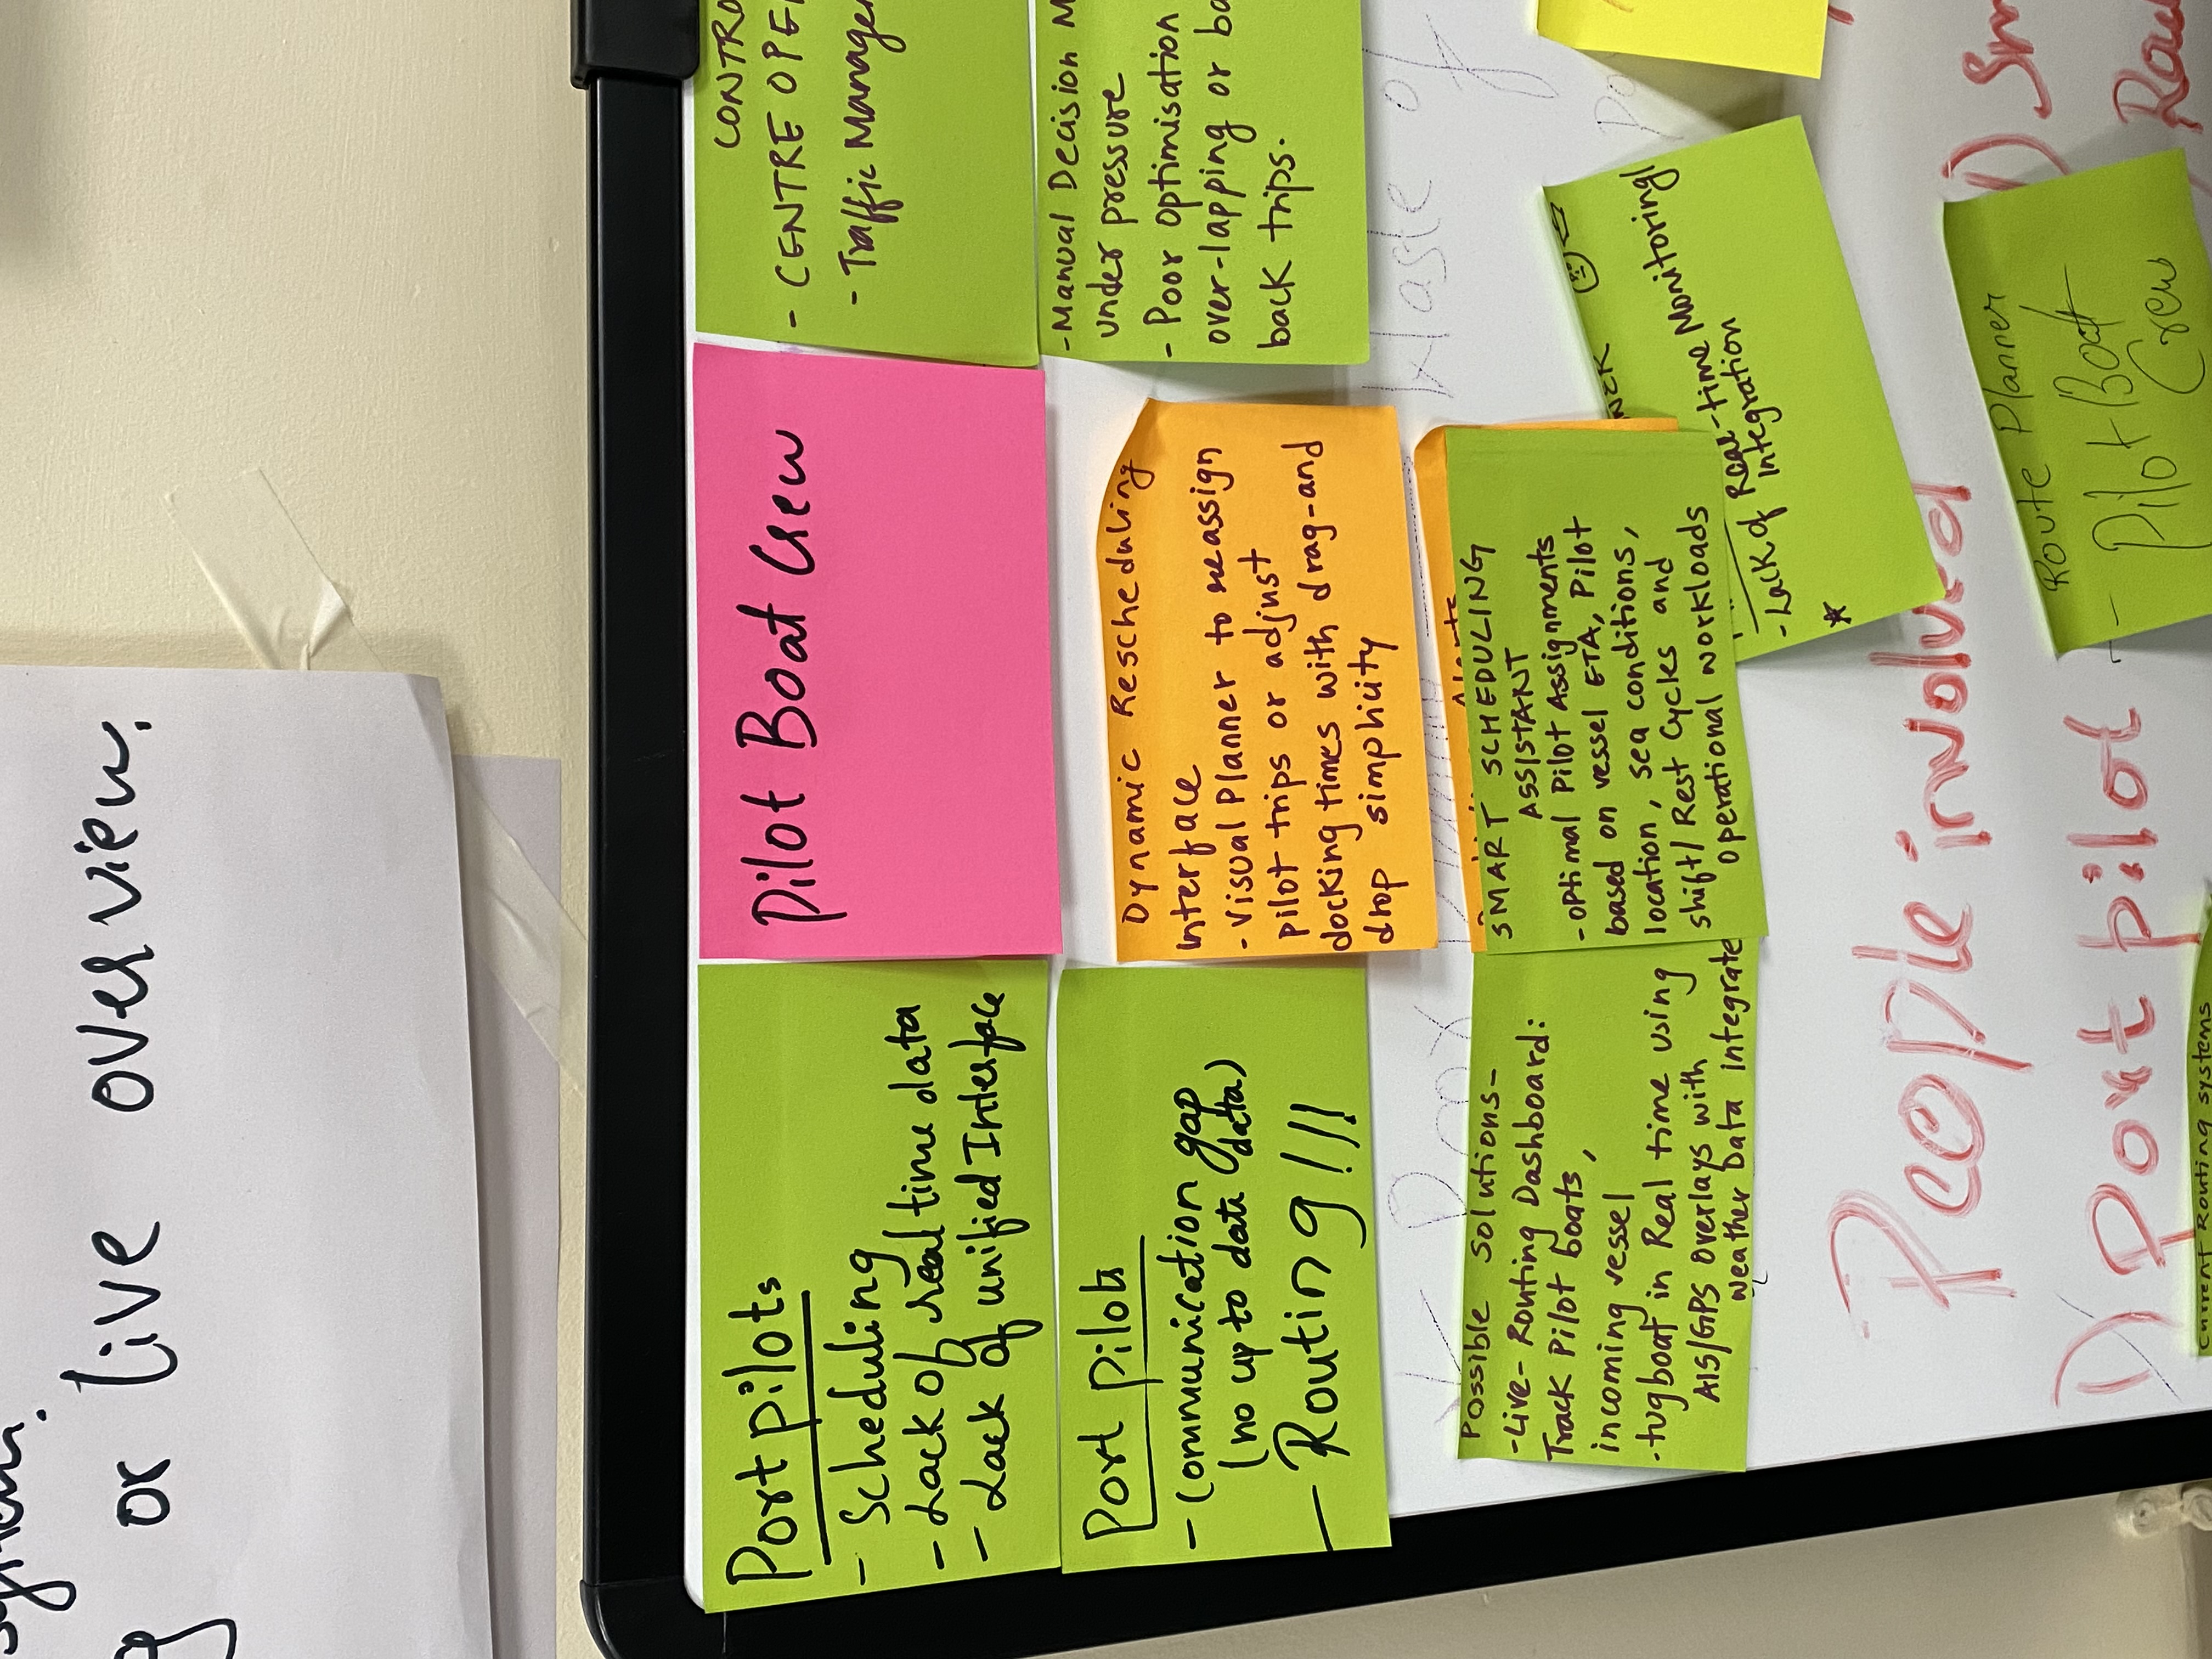 system.
or live overview.
Port pilots
- Scheduling
- Lack of real time data
- Lack of unified Interface
Pilot Boat Crew
- CENTRE
- Traffic
Port pilots
- Communication gap
(no up to date data)
- Routing!!!
Dynamic Rescheduling
interface
- Visual Planner to reassign
pilot trips or adjust
docking times with drag-and
drop simplicity
- Manual Decision
under pressure
- Poor Optimisation
over-lapping or
back trips.
Waste of
Alerts
Possible Solutions-
- Live- Routing Dashboard:
Track Pilot boats,
incoming vessel
- tugboat in Real time using
AIS/GPS overlays with
weather Data integrate
SMART SCHEDULING
ASSISTANT
- Optimal Pilot Assignments
based on vessel ETA, Pilot
location, sea conditions,
shift/ Rest Cycles and
operational workloads
- Lack of Real-time Monitoring
Integration
People involved
1) Port pilot
Route Planner
- Pilot Boat
Crew
1)
Current Routing systems